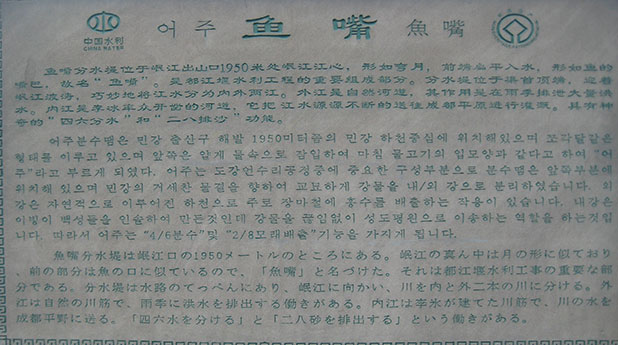 어주 鱼嘴 魚嘴
中国水利
CHINA WATER
鱼嘴分水堤位于岷江出山口1950米处岷江江心，形如弯月，前端扁平入水，形如鱼的
嘴巴，故名"鱼嘴"。是都江堰水利工程的重要组成部分。分水堤位于渠首顶端，迎着
岷江波涛，巧妙地将江水分为内外两江。外江是自然河道，其作用是在雨季排泄大量洪
水。内江是李冰率众开凿的河道，它把江水源源不断的送往成都平原进行灌溉。具有神
奇的"四六分水"和"二八排沙"功能。
어주분수댐은 민강 출산구 해발 1950미터쯤의 민강 하천중심에 위치해있으며 쪼각달같은
형태를 이루고 있으며 앞쪽은 얇게 물속으로 잠입하여 마침 물고기의 입모양과 같다고 하여 "어
주"라고 부르게 되였다. 어주는 도강언수리공정중에 중요한 구성부분으로 분수댐은 앞쪽부분에
위치해 있으며 민강의 거세찬 물결을 향하여 교묘하게 강물을 내/외 강으로 분리하였습니다. 외
강은 자연적으로 이루어진 하천으로 주로 장마철에 홍수를 배출하는 작용이 있습니다. 내강은
이빙이 백성들을 인솔하여 만든것인데 강물을 끊임없이 성도평원으로 이송하는 역할을 하는것입
니다. 따라서 어주는 "4/6분수"및 "2/8모래배출"기능을 가지게 됩니다.
魚嘴分水堤は岷江口の1950メートルのところにある。岷江の真ん中は月の形に似ており
、前の部分は魚の口に似ているので、「魚嘴」と名づけた。それは都江堰水利工事の重要な部
分である。分水堤は水路のてっぺんにあり、岷江に向かい、川を内と外二本の川に分ける。外
江は自然の川筋で、雨季に洪水を排出する働きがある。内江は李氷が建てた川筋で、川の水を
成都平野に送る。「四六水を分ける」と「二八砂を排出する」という働きがある。